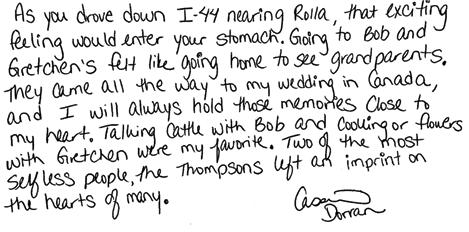 As you drove down I-44 nearing Rolla, that exciting
feeling would enter your stomach. Going to Bob and
Gretchen's felt like going home to see grandparents.
They came all the way to my wedding in Canada,
and I will always hold those memories close to
my heart. Talking Cattle with Bob and Cooking or flowers
with Gretchen were my favorite. Two of the most
selfless people, the Thompsons left an imprint on
the hearts of many.
Dorran